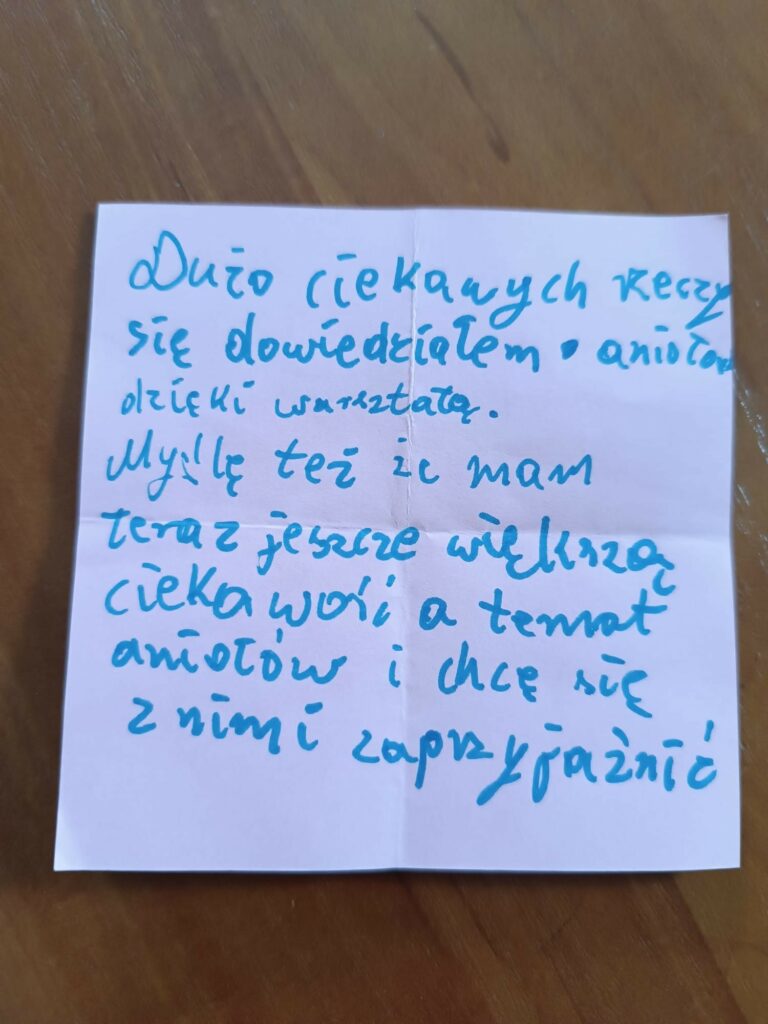 Dużo ciekawych rzeczy
się dowiedziałem • aniołow
dzięki warsztatą.
Myślę też że mam
teraz jeszcze większą
ciekawość a temat
aniołów i chcę się
z nimi zaprzyjaźnić